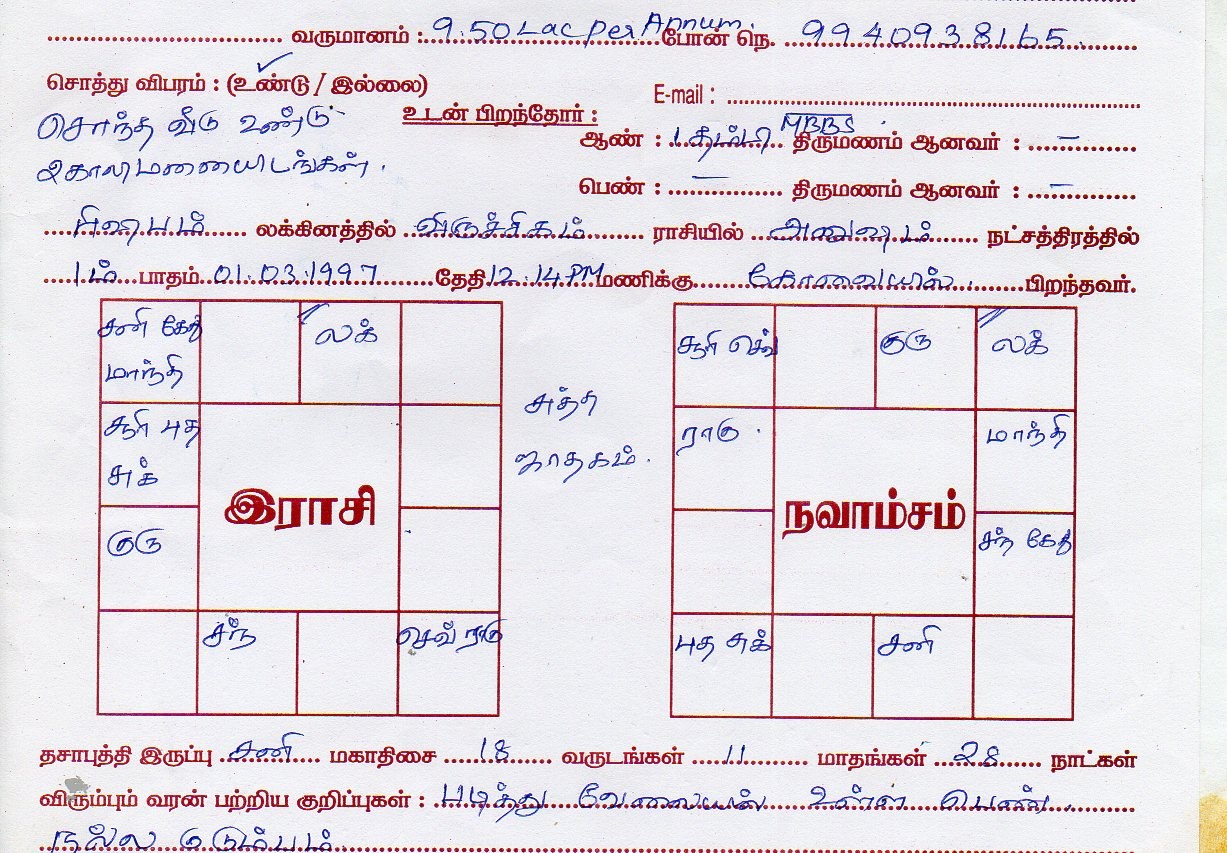 வருமானம் : 9.50 Lac per Annum. போன் நெ. 9940938165.
சொத்து விபரம் : (உண்டு / இல்லை)
E-mail :
சொந்த வீடு உண்டு
உடன் பிறந்தோர் :
ஆண் : 1 தம்பி MBBS. திருமணம் ஆனவர் : –
2 காலிமனையிடங்கள்.
பெண் : – திருமணம் ஆனவர் : –
ரிஷபம் லக்கினத்தில் விருச்சிகம் ராசியில் அனுஷம் நட்சத்திரத்தில்
1ம் பாதம் 01.03.1997 தேதி 12.14 PM மணிக்கு கோவையில். பிறந்தவர்.
சனி கேது
மாந்தி
லக்
சூரி புத
சுக்
குரு
இராசி
சந்
செவ் ராகு
சுத்த
ஜாதகம்.
சூரி செவ்
குரு
லக்
ராகு.
மாந்தி
நவாம்சம்
சந் கேது
புத சுக்
சனி
தசாபுத்தி இருப்பு சனி மகாதிசை 18 வருடங்கள் 11 மாதங்கள் 28 நாட்கள்
விரும்பும் வரன் பற்றிய குறிப்புகள் : படித்து வேலையில் உள்ள பெண்.
நல்ல குடும்பம்.